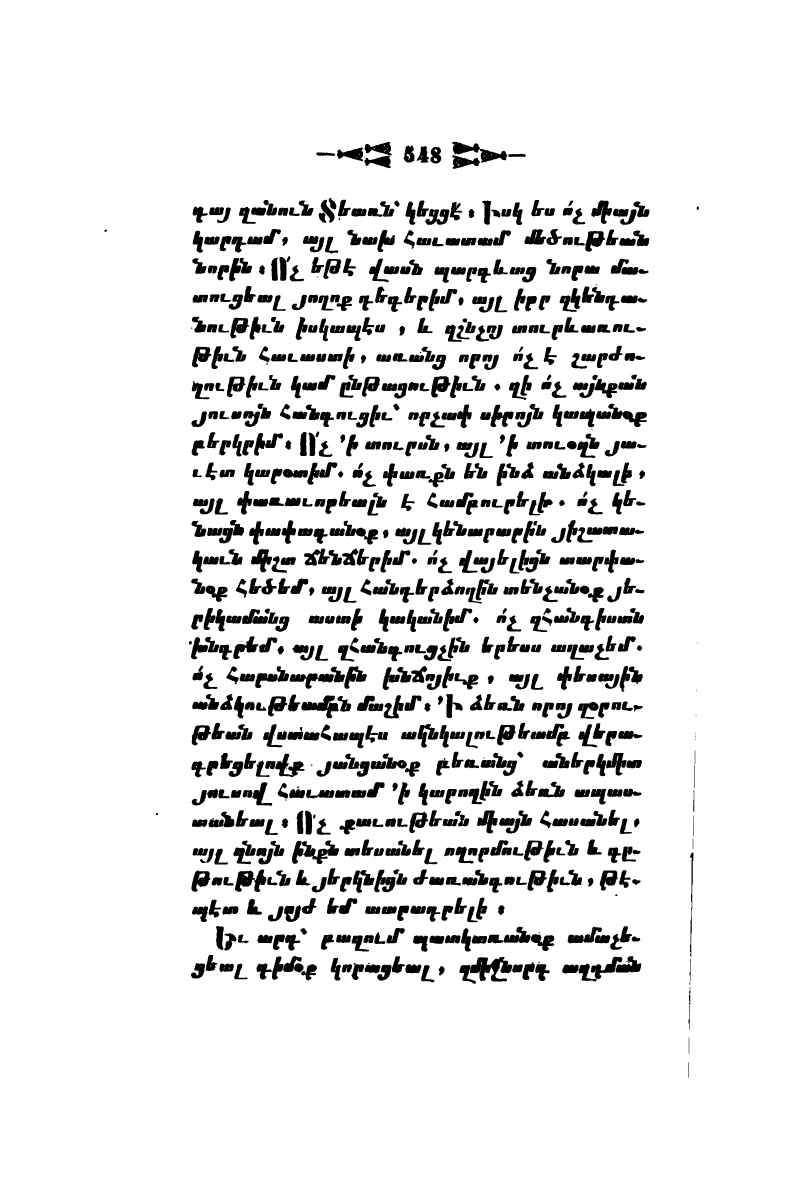 548
դայ զանուն Տեառն՝ կեցցէ։ Իսկ ես ո՛չ միայն
կարդամ, այլ նախ հաւատամ մեծութեան
նորին։ Ո՛չ եթէ վասն պարգևաց նորա մա-
տուցեալ յողոք դեգերիմ, այլ իբր զկենդա-
նութիւն իսկապէս, և զշնչոյ տուրևառու-
թիւն հաւաստի, առանց որոյ ո՛չ է շարժո-
ղութիւն կամ ընթացութիւն. զի ո՛չ այնքան
յուսոյն հանգուցիւ՝ որչափ սիրոյն կապանօք
բերկրիմ։ Ո՛չ ՚ի տուրսն, այլ ՚ի տուօղն յա-
ւէտ կարօտիմ. ո՛չ փառքն են ինձ անձկալի,
այլ փառաւորեալն է համբուրելի. ո՛չ կե-
նացն փափագանօք, այլ կենարարին յիշատա-
կաւն միշտ ճենճերիմ. ո՛չ վայելիցն տարփա-
նօք հեծեմ, այլ հանդերձողին տենչանօք յե-
րիկամանց աստի կականիմ. ո՛չ զհանգիստն
խնդրեմ, այլ զհանգուցչին երեսս աղաչեմ.
ո՛չ հարսնարանին խնճոյիւք, այլ փեսային
անձկութեամբն մաշիմ։ ՚Ի ձեռն որոյ զօրու-
թեան վստահապէս ակնկալութեամբ վերա-
գրեցելովք յանցանօք բեռանց՝ աներկմիտ
յուսով հաւատամ ՚ի կարողին ձեռն ապաս-
տանեալ։ Ո՛չ քաւութեան միայն հասանել,
այլ զնոյն ինքն տեսանել ողորմութիւն և գը-
թութիւն և յերկնիցն ժառանգութիւն, թէ-
պէտ և յոյժ եմ տարադրելի։
Եւ արդ՝ բաղում պատկառանօք ամաչե-
ցեալ դիմօք կորացեալ, զմիջնորդ աղդման